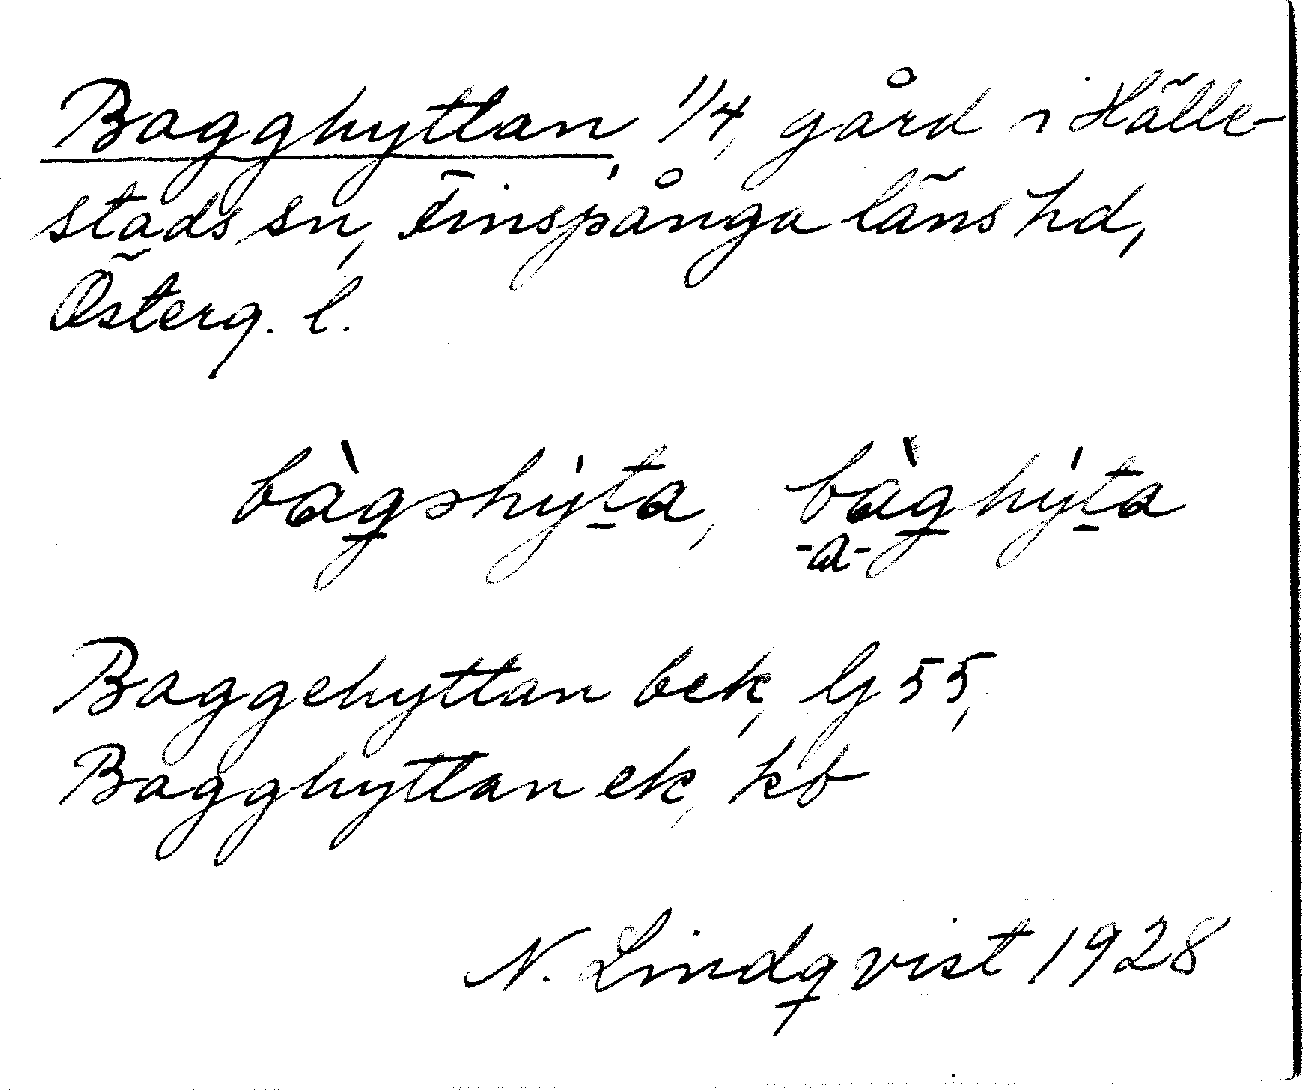 Bagghyttan, 1/4, gård i Hälle-
stads sn, Finspånga läns hd,
Österg. l.
bàgshýta, bàghýta
-a-
Baggehyttan bek, lj 55,
Bagghyttan ek, kb
N. Lindqvist 1928